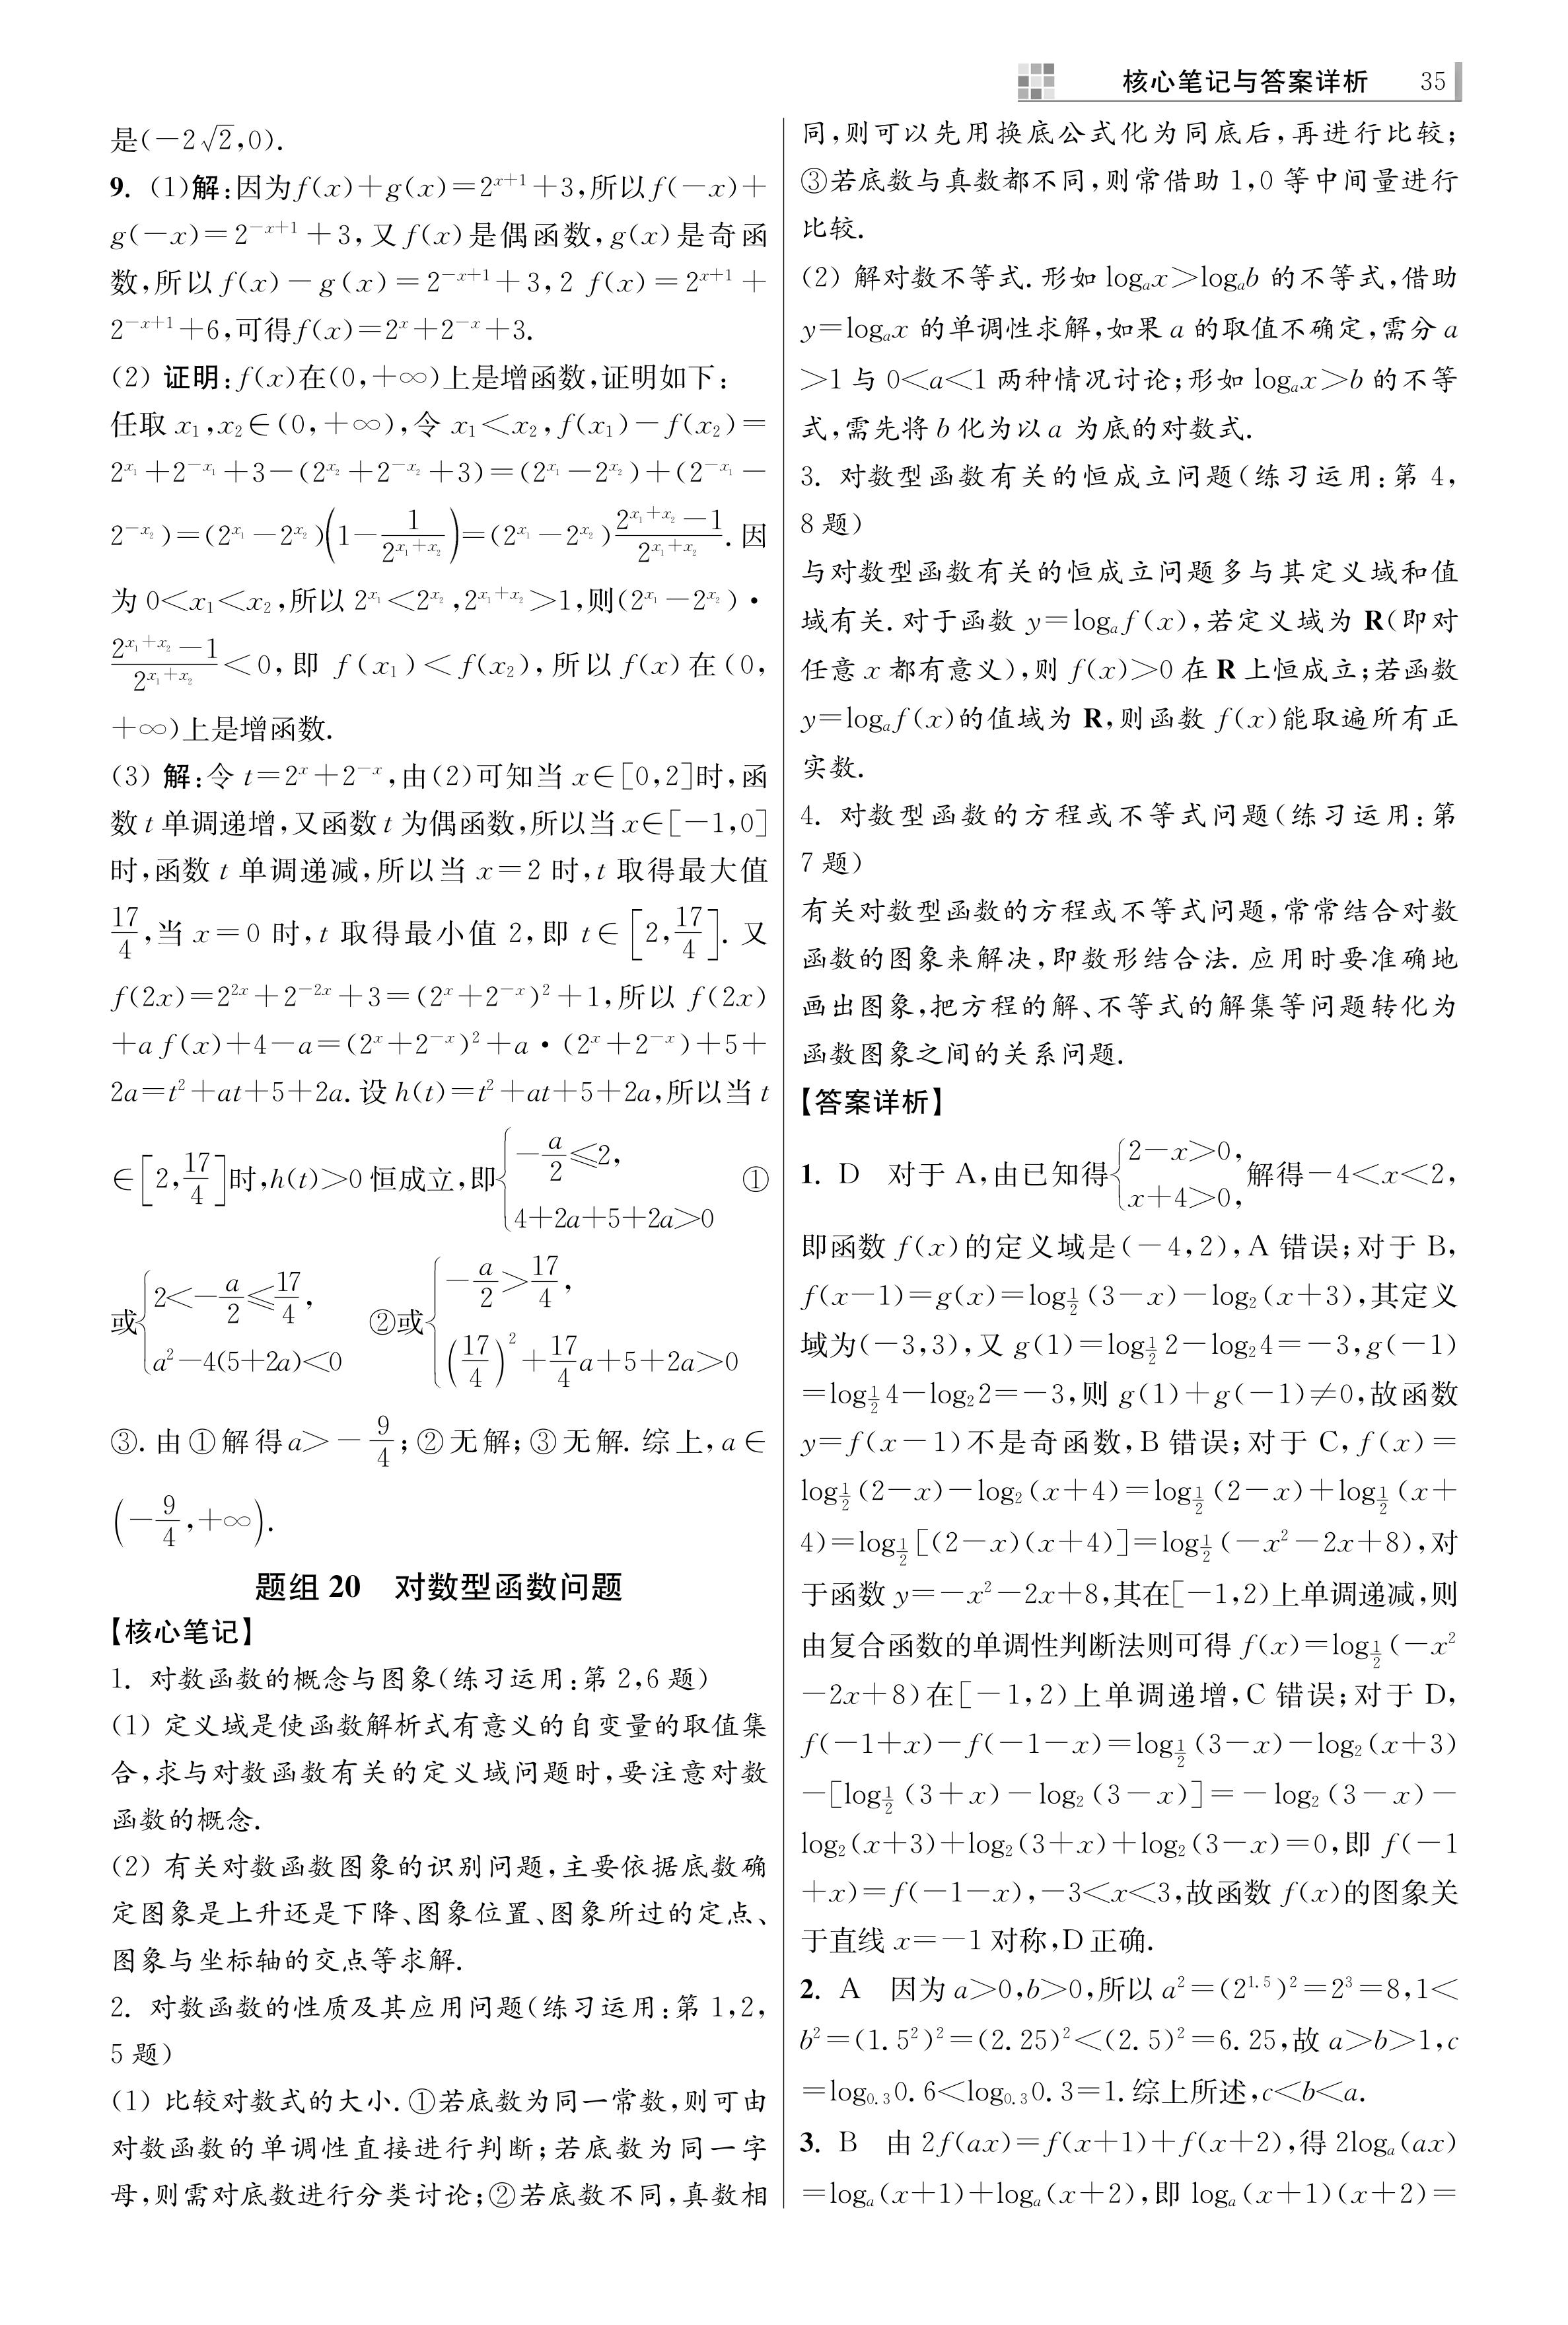 核心笔记与答案详析 35
是(-2√2,0).
9. (1)解:因为f(x)+g(x)=2^{x+1}+3,所以f(-x)+
g(-x)=2^{-x+1}+3,又f(x)是偶函数,g(x)是奇函
数,所以f(x)-g(x)=2^{-x+1}+3,2 f(x)=2^{x+1}+
2^{-x+1}+6,可得f(x)=2^x+2^{-x}+3.
(2) 证明:f(x)在(0,+∞)上是增函数,证明如下:
任取x₁,x₂∈(0,+∞),令x₁<x₂,f(x₁)-f(x₂)=
2^{x₁}+2^{-x₁}+3-(2^{x₂}+2^{-x₂}+3)=(2^{x₁}-2^{x₂})+(2^{-x₁}-
2^{-x₂})=(2^{x₁}-2^{x₂})(1-\frac{1}{2^{x₁+x₂}})=(2^{x₁}-2^{x₂})\frac{2^{x₁+x₂}-1}{2^{x₁+x₂}}.因
为0<x₁<x₂,所以2^{x₁}<2^{x₂},2^{x₁+x₂}>1,则(2^{x₁}-2^{x₂})·
\frac{2^{x₁+x₂}-1}{2^{x₁+x₂}}<0,即 f(x₁)<f(x₂),所以f(x)在(0,
+∞)上是增函数.
(3) 解:令t=2^x+2^{-x},由(2)可知当x∈[0,2]时,函
数t单调递增,又函数t为偶函数,所以当x∈[-1,0]
时,函数t单调递减,所以当x=2时,t取得最大值
\frac{17}{4},当x=0时,t取得最小值2,即t∈[2,\frac{17}{4}].又
f(2x)=2^{2x}+2^{-2x}+3=(2^x+2^{-x})²+1,所以f(2x)
+a f(x)+4-a=(2^x+2^{-x})²+a·(2^x+2^{-x})+5+
2a=t²+at+5+2a.设h(t)=t²+at+5+2a,所以当t
∈[2,\frac{17}{4}]时,h(t)>0恒成立,即{-\frac{a}{2}≤2, 4+2a+5+2a>0 ①
或{2<-\frac{a}{2}≤\frac{17}{4}, a²-4(5+2a)<0 ②或{-\frac{a}{2}>\frac{17}{4}, (\frac{17}{4})²+\frac{17}{4}a+5+2a>0
③.由①解得a>-\frac{9}{4};②无解;③无解.综上,a∈
(-\frac{9}{4},+∞).
题组20 对数型函数问题
【核心笔记】
1. 对数函数的概念与图象(练习运用:第2,6题)
(1) 定义域是使函数解析式有意义的自变量的取值集
合,求与对数函数有关的定义域问题时,要注意对数
函数的概念.
(2) 有关对数函数图象的识别问题,主要依据底数确
定图象是上升还是下降、图象位置、图象所过的定点、
图象与坐标轴的交点等求解.
2. 对数函数的性质及其应用问题(练习运用:第1,2,
5题)
(1) 比较对数式的大小.①若底数为同一常数,则可由
对数函数的单调性直接进行判断;若底数为同一字
母,则需对底数进行分类讨论;②若底数不同,真数相
同,则可以先用换底公式化为同底后,再进行比较;
③若底数与真数都不同,则常借助1,0等中间量进行
比较.
(2) 解对数不等式.形如log_a x>log_a b的不等式,借助
y=log_a x的单调性求解,如果a的取值不确定,需分a
>1与0<a<1两种情况讨论;形如log_a x>b的不等
式,需先将b化为以a为底的对数式.
3. 对数型函数有关的恒成立问题(练习运用:第4,
8题)
与对数型函数有关的恒成立问题多与其定义域和值
域有关.对于函数y=log_a f(x),若定义域为R(即对
任意x都有意义),则f(x)>0在R上恒成立;若函数
y=log_a f(x)的值域为R,则函数f(x)能取遍所有正
实数.
4. 对数型函数的方程或不等式问题(练习运用:第
7题)
有关对数型函数的方程或不等式问题,常常结合对数
函数的图象来解决,即数形结合法.应用时要准确地
画出图象,把方程的解、不等式的解集等问题转化为
函数图象之间的关系问题.
【答案详析】
1. D 对于A,由已知得{2-x>0, x+4>0, 解得-4<x<2,
即函数f(x)的定义域是(-4,2),A错误;对于B,
f(x-1)=g(x)=log_{\frac{1}{2}}(3-x)-log₂(x+3),其定义
域为(-3,3),又g(1)=log_{\frac{1}{2}}2-log₂4=-3,g(-1)
=log_{\frac{1}{2}}4-log₂2=-3,则g(1)+g(-1)≠0,故函数
y=f(x-1)不是奇函数,B错误;对于C,f(x)=
log_{\frac{1}{2}}(2-x)-log₂(x+4)=log_{\frac{1}{2}}(2-x)+log_{\frac{1}{2}}(x+
4)=log_{\frac{1}{2}}[(2-x)(x+4)]=log_{\frac{1}{2}}(-x²-2x+8),对
于函数y=-x²-2x+8,其在[-1,2)上单调递减,则
由复合函数的单调性判断法则可得f(x)=log_{\frac{1}{2}}(-x²
-2x+8)在[-1,2)上单调递增,C错误;对于D,
f(-1+x)-f(-1-x)=log_{\frac{1}{2}}(3-x)-log₂(x+3)
-[log_{\frac{1}{2}}(3+x)-log₂(3-x)]=-log₂(3-x)-
log₂(x+3)+log₂(3+x)+log₂(3-x)=0,即f(-1
+x)=f(-1-x),-3<x<3,故函数f(x)的图象关
于直线x=-1对称,D正确.
2. A 因为a>0,b>0,所以a²=(2^{1.5})²=2³=8,1<
b²=(1.5²)²=(2.25)²<(2.5)²=6.25,故a>b>1,c
=log_{0.3}0.6<log_{0.3}0.3=1.综上所述,c<b<a.
3. B 由2f(ax)=f(x+1)+f(x+2),得2log_a(ax)
=log_a(x+1)+log_a(x+2),即log_a(x+1)(x+2)=